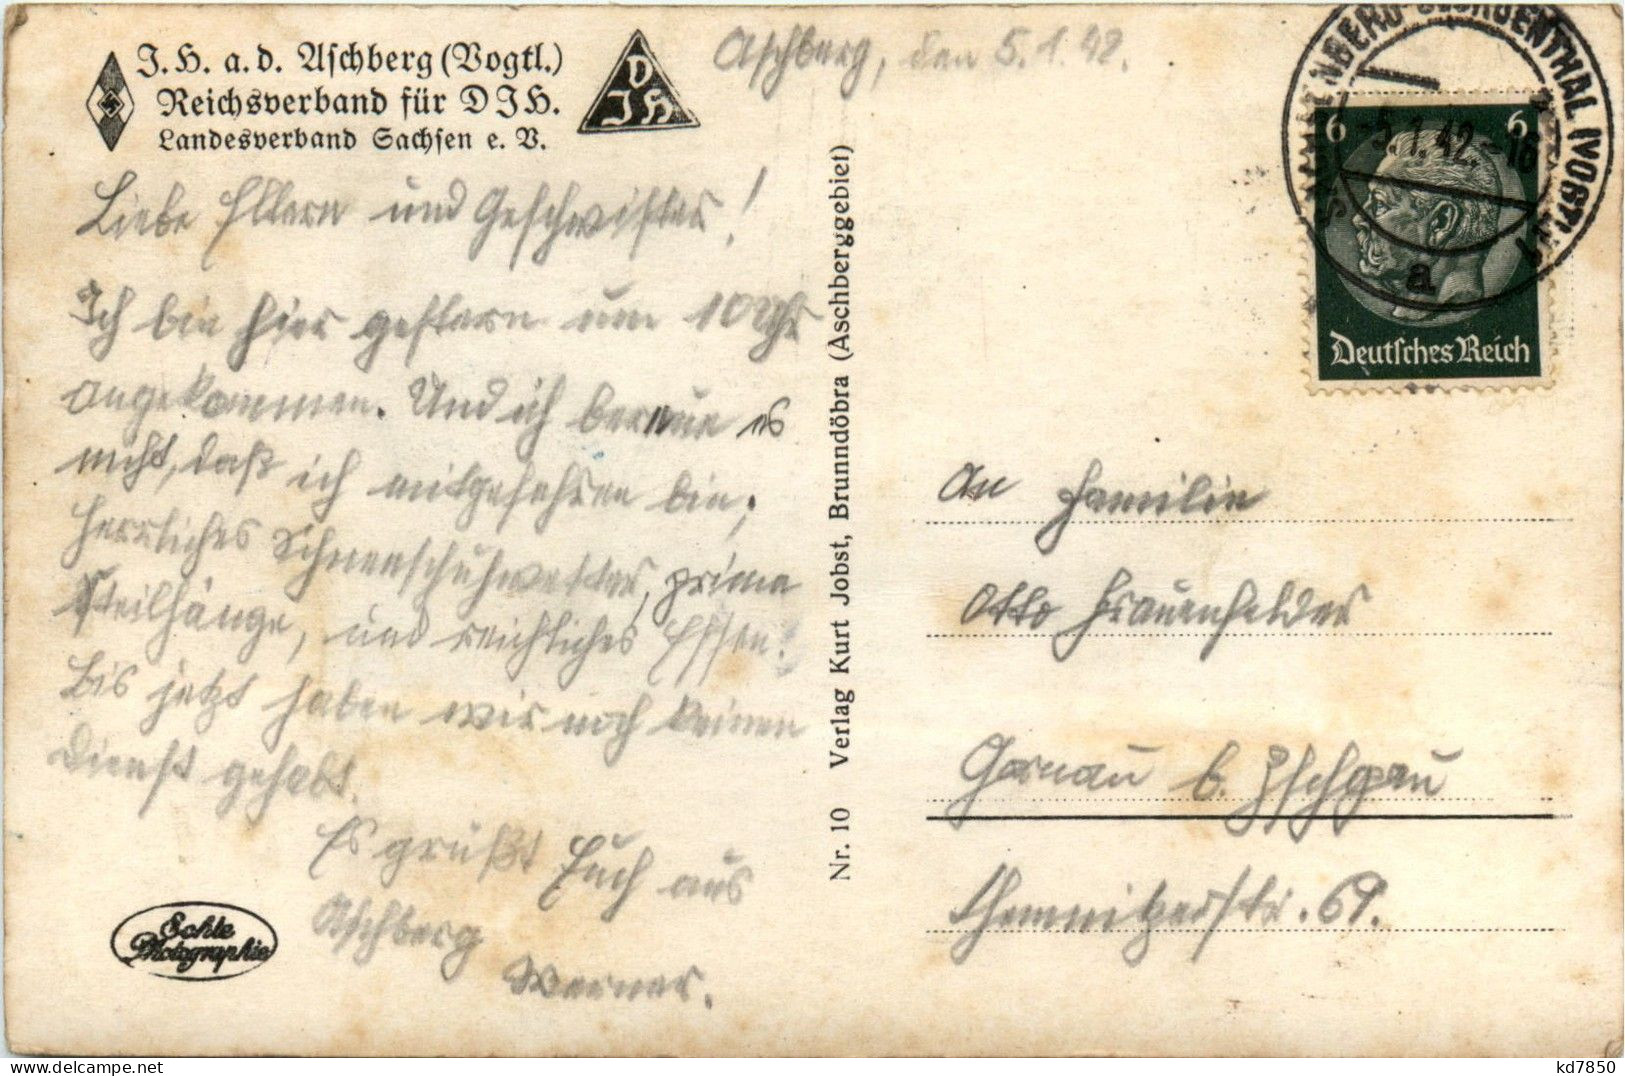 J. H. a. d. Aschberg (Vogtl.)
Reichsverband für DJH.
Landesverband Sachsen e. V.
DJH
Aschberg, den 5.1.42.
Liebe Eltern und Geschwister!
Ich bin hier gestern um 10 Uhr
angekommen. Und ich bereue es
nicht, daß ich mitgefahren bin;
herrliches Schneeschuhwetter, prima
Steilhänge, und reichliches Essen!
Bis jetzt haben wir noch keinen
Dienst gehabt.
Es grüßt Euch aus
Aschberg
Werner.
Echte
Photographie
Nr. 10 Verlag Kurt Jobst, Brunndöbra (Aschberggebiet)
GEORGENTHAL (VOGTL)
-5.1.42.-16
a
6 6
Deutsches Reich
An Familie
Otto Frauenfelder
Gornau b. Zschopau
Chemnitzerstr. 69.
kd7850